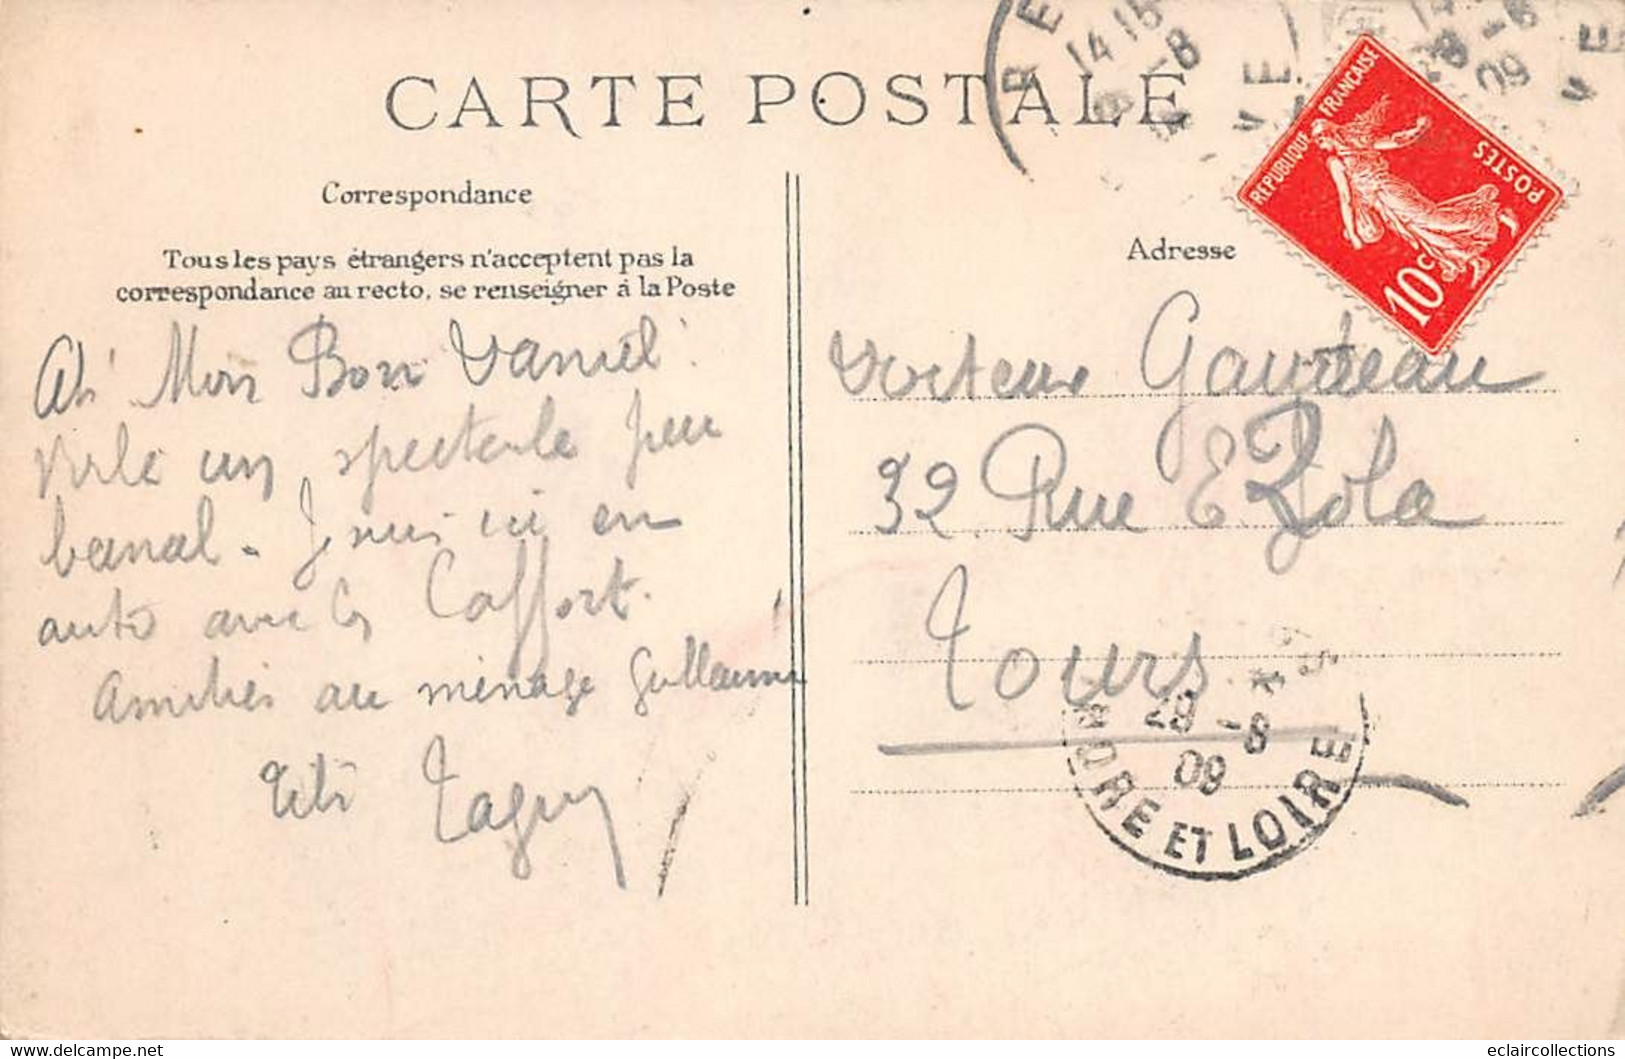 CARTE POSTALE
Correspondance
Tous les pays étrangers n'acceptent pas la
correspondance au recto, se renseigner à la Poste
Ah! Mon Bon Daniel!
Voilà un spectacle peu
banal. Je suis ici en
auto avec les Caffort.
Amitiés au ménage Guillaume
Titi Taguy
Adresse
Docteur Gaudeau
32 Rue E Zola
Tours
RE
14 15
-8
VE
14
28 -8
09
VE
REPUBLIQUE FRANÇAISE
POSTES
10c
29 -8
09
INDRE ET LOIRE
eclaircollections
delcampe.net